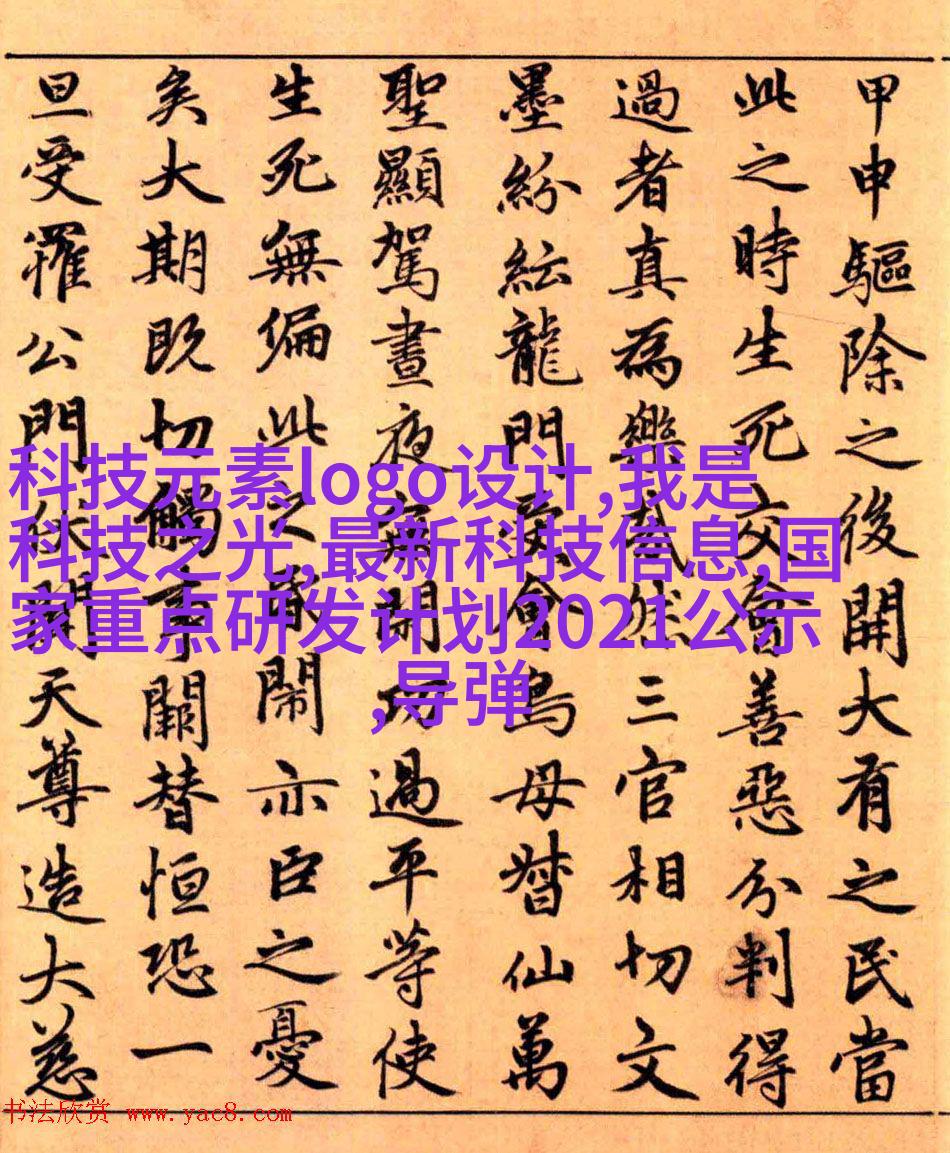 甲申驅除之後開大有之民當
此之時生死交會善惡分判得
過者真為樂哉然三官相切文
墨紛紜龍門受會鳥母督仙萬
聖顯駕晝夜無閒功過平等使
生死無偏此之鬧亦臣之憂
矣大期既切觸事闕替恒恐一
旦受罹公門伏聞天尊造大慈
科技元素logo设计,我是
科技之光,最新科技信息,国
家重点研发计划2021公示
,导弹
书法欣赏 www.yac8.com